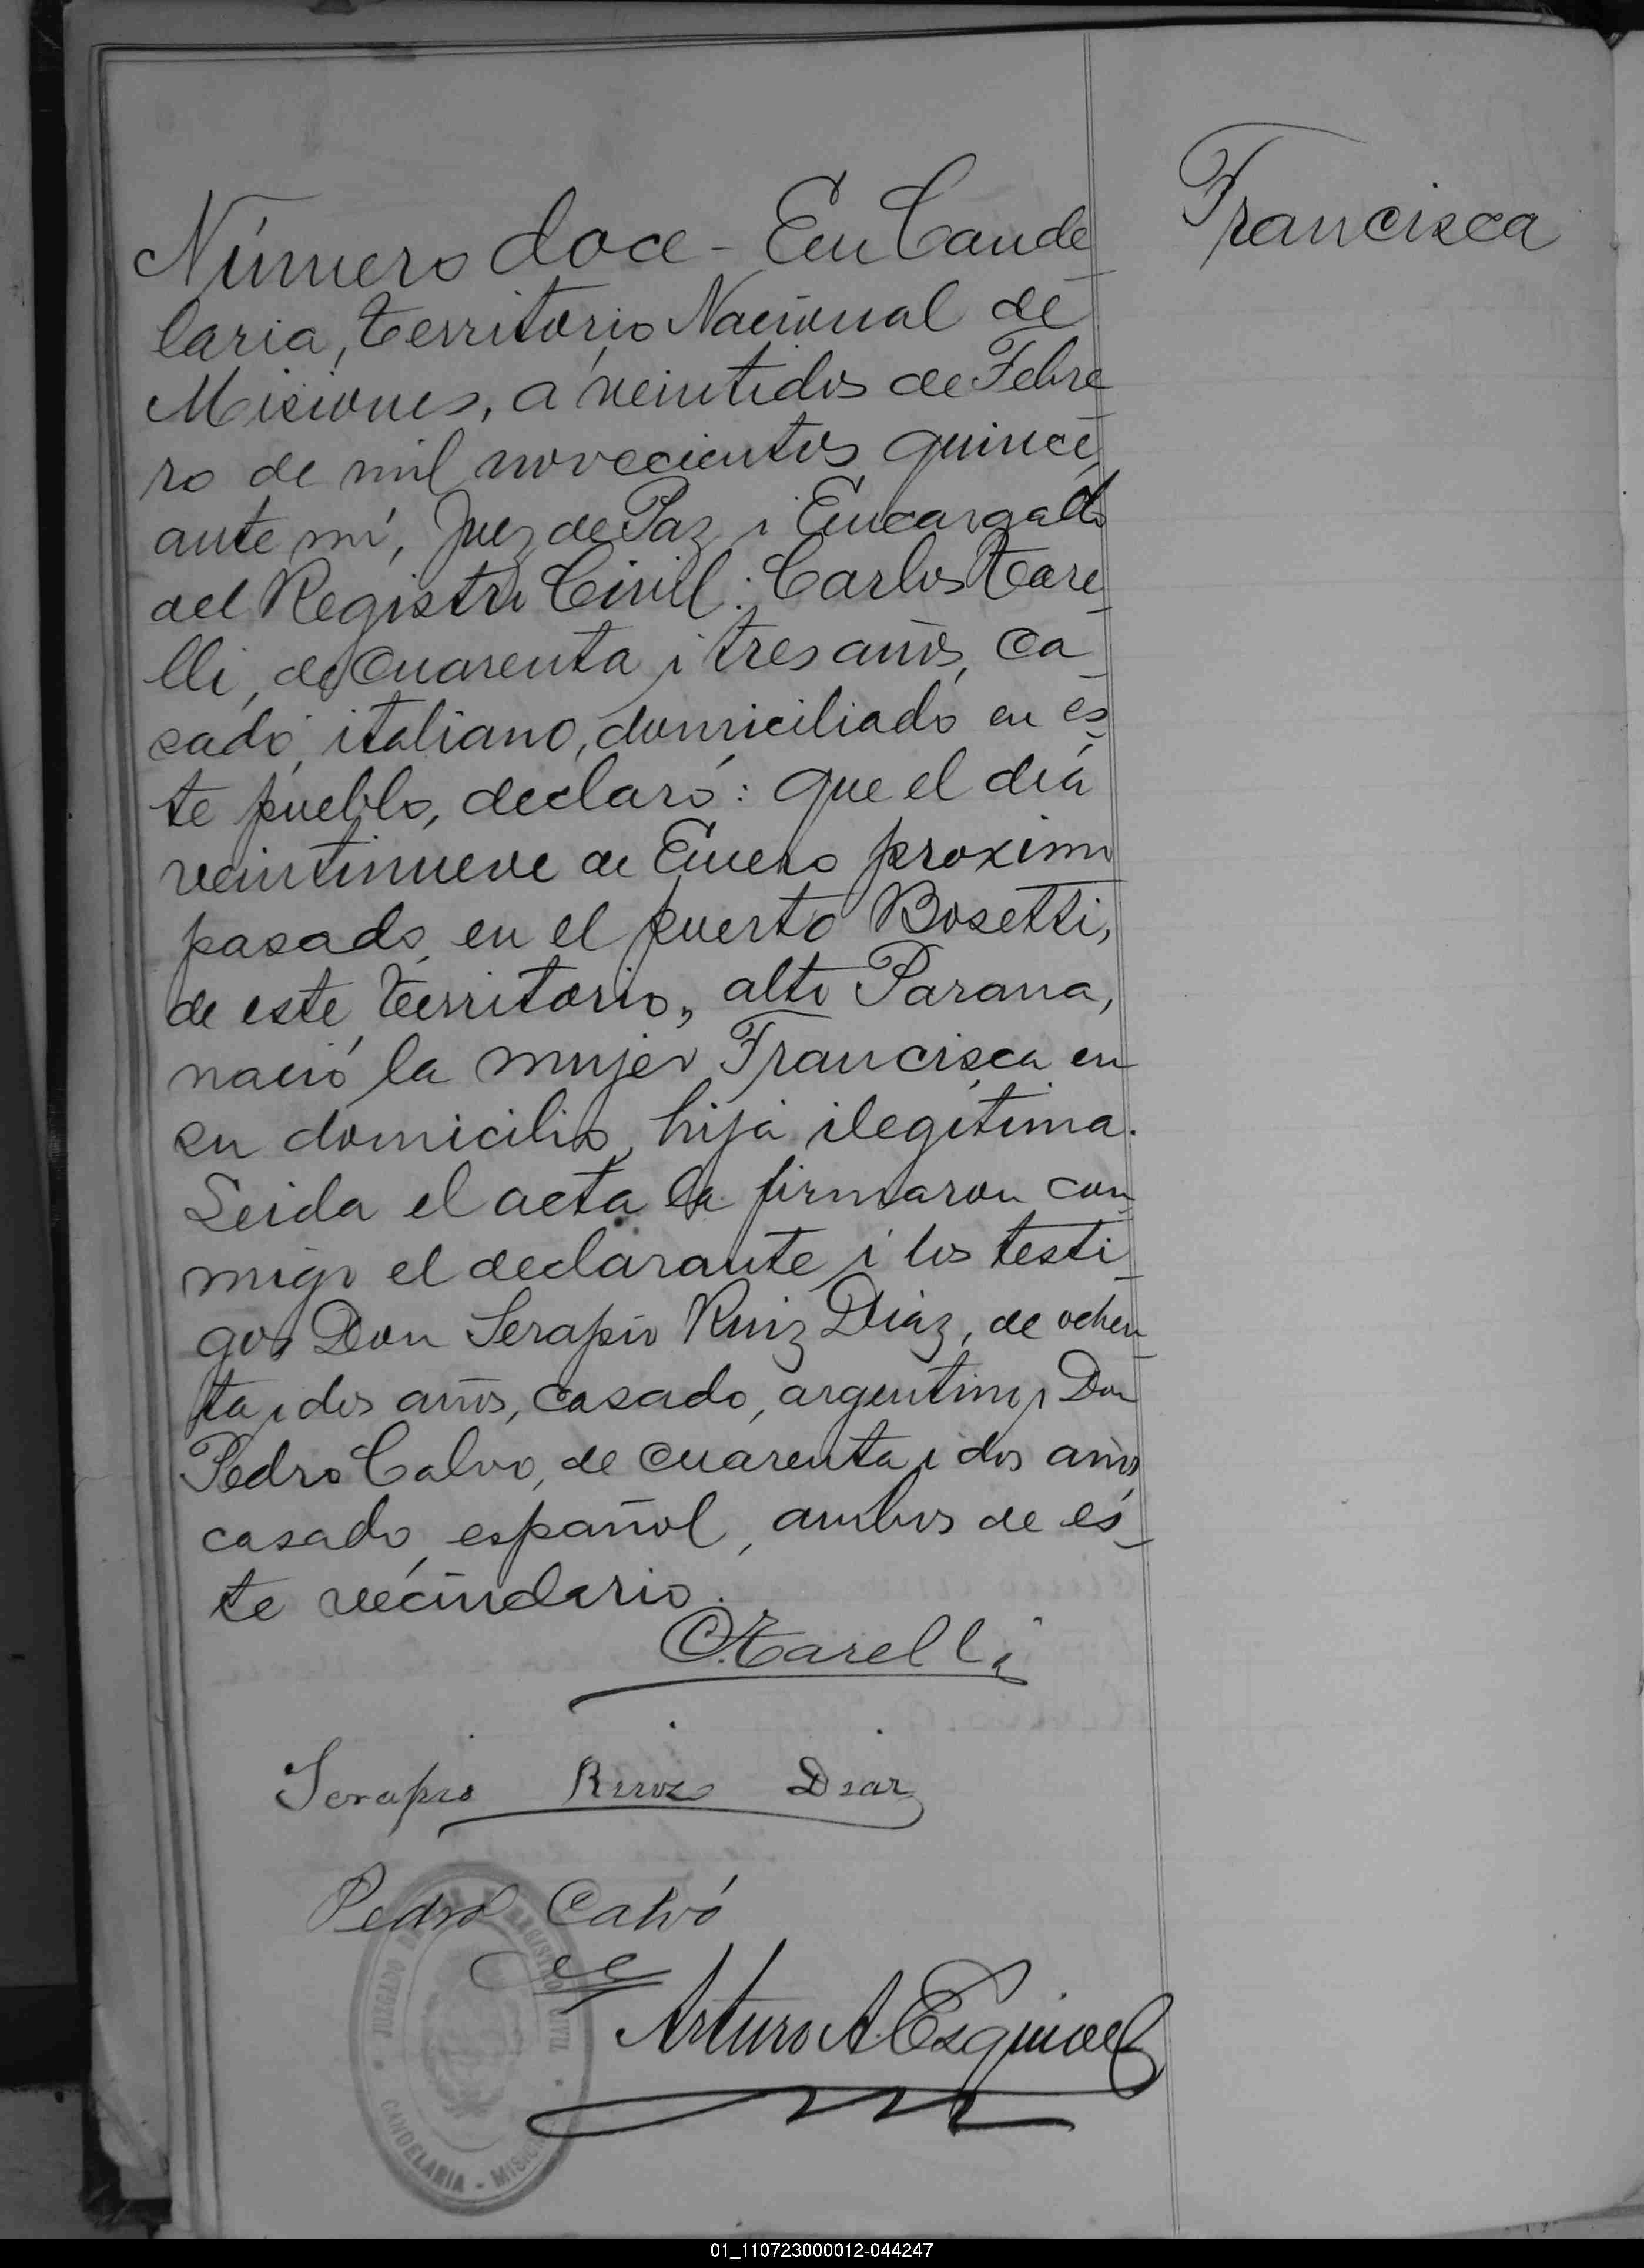 Francisca
Número doce - En Cande
laria, territorio Nacional de
Misiones, a veintidos de Febre
ro de mil novecientos quince,
ante mí, Juez de Paz i Encargado
del Registro Civil: Carlos Tare
lli, de cuarenta i tres años, ca
sado, italiano, domiciliado en és
te pueblo, declaró: que el día
veintinueve de Enero proximo
pasado, en el puerto Bosetti,
de este territorio, alto Parana,
nació la mujer Francisca en
su domicilio, hija ilegitima.
Leida el acta la firmaron con
migo el declarante i los testi
gos Don Serapio Ruiz Diaz, de ochen
ta i dos años, casado, argentino i Don
Pedro Calvo, de cuarenta i dos años
casado, español, ambos de és
te vecindario.
C. Tarelli
Serapio Ruiz Diaz
Pedro Calvó
Arturo A. Esquivel
JUZGADO DE PAZ REGISTRO CIVIL
CANDELARIA - MISIONES
01_110723000012-044247